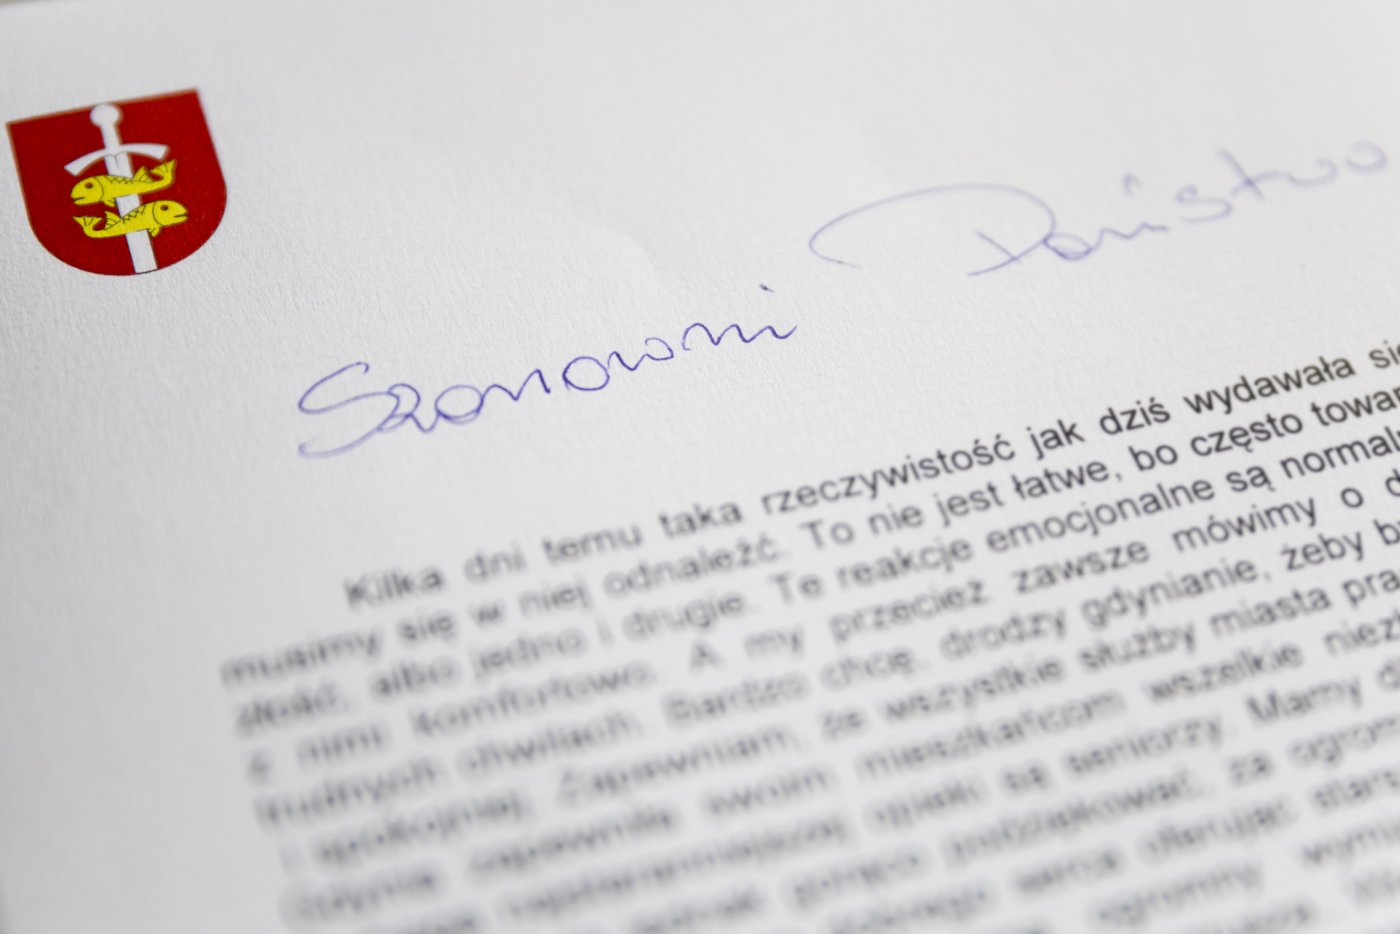 Szanowni Państwo
Kilka dni temu taka rzeczywistość jak dziś wydawała się
musimy się w niej odnaleźć. To nie jest łatwe, bo często towar
złość, albo jedno i drugie. Te reakcje emocjonalne są normaln
z nimi komfortowo. A my przecież zawsze mówimy o d
trudnych chwilach. Bardzo chcę, drodzy gdynianie, żeby b
i spokojniej. Zapewniam, że wszystkie służby miasta pra
Gdynia zapewniła swoim mieszkańcom wszelkie niezb
najstaranniejszej opieki są seniorzy. Mamy d
gorąco podziękować, za ogrom
serca oferując starsz
ogromny wymi